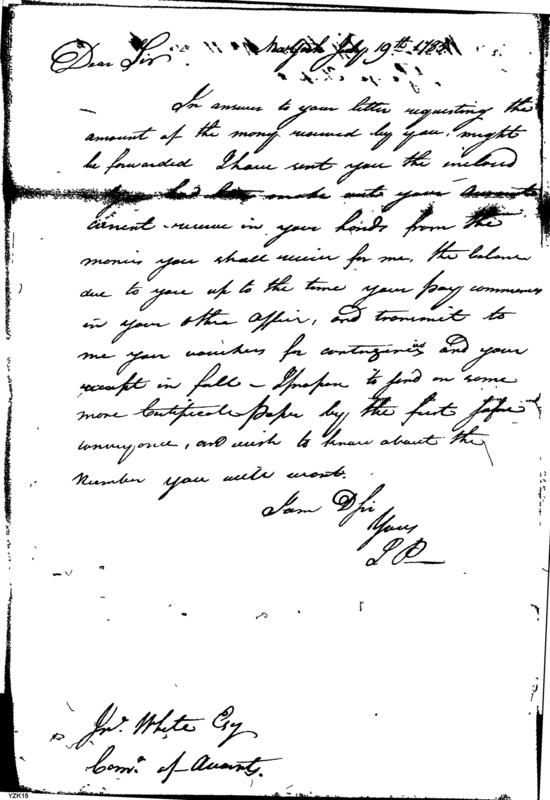 New York July 19th 1788
Dear Sir
In answer to your letter requesting the
amount of the money received by you, might
be forwarded I have sent you the inclosed
you had better make out your Account
current - receive in your hands from the
monies you shall receive for me, the balance
due to you up to the time your pay commences
in your other office, and transmit to
me your vouchers for contingencies and your
receipt in full - I propose to send on some
more Certificate paper by the first safe
conveyance, and wish to know about the
number you will want.
I am D Sir
Yours
J P
Jno. White Esq
Comr. of Accounts.
YZK15